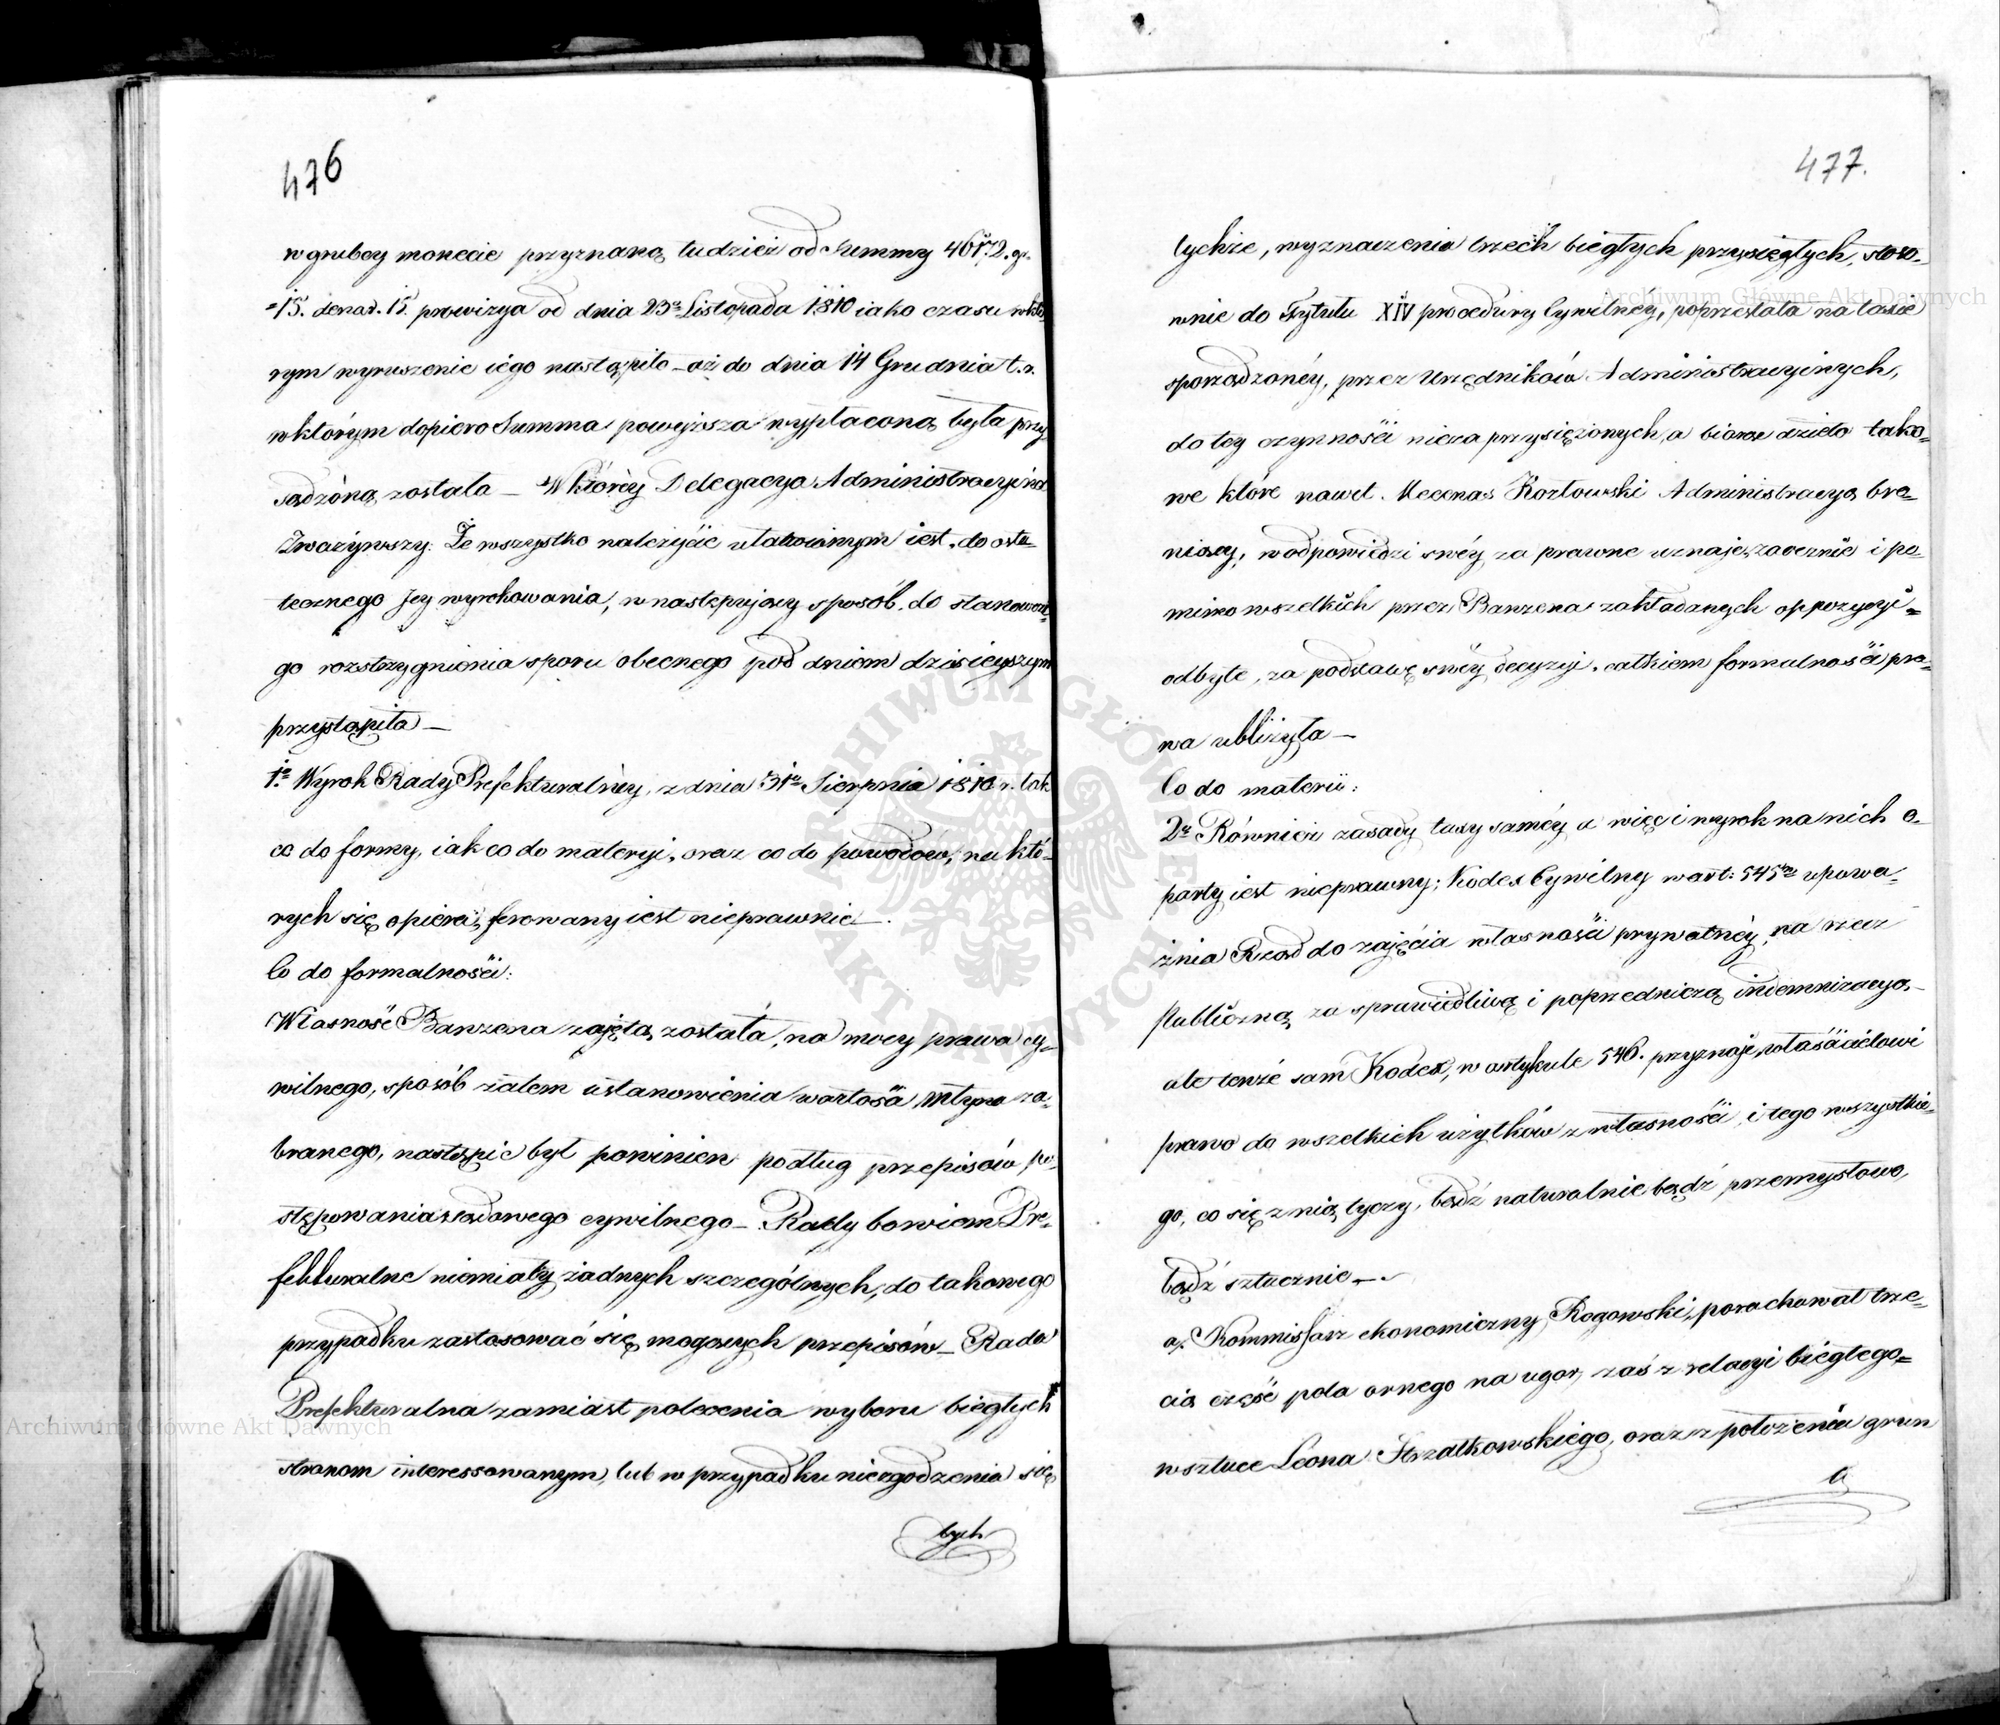 476
w grubey monecie przyznaną tudzież od Summy 4672. gr.
15. denar. 15. prowizya od dnia 23go Listopada 1810 iako czasu w któ-
rym wyruszenie iego nastąpiło – aż do dnia 14 Grudnia t. r.
w którym dopiero Summa powyższa wypłaconą była przy
sądzoną została – W którey Delegacya Administracyina
Zważywszy: Że wszystko należycie ułatwionym iest, do osta-
tecznego Jey wyrokowania, w następujący sposób, do stanowcze-
go rozstrzygnienia sporu obecnego pod dniem dzisieyszym
przystąpiła –
1o Wyrok Rady Prefekturalnéy, z dnia 31go Sierpnia 1810 r. tak
co do formy, iak co do materyi, oraz co do powodów, na któ-
rych się opiera, ferowany iest nieprawnie –
Co do formalności:
Własność Banzena zajętą została, na mocy prawa cy-
wilnego, sposób zatem ustanowienia wartości młyna za-
branego, nastąpić był powinien podług przepisów po-
stępowania sądowego cywilnego – Rady bowiem Pre-
fekturalne niemiały żadnych szczególnych, do takowego
przypadku zastosować się mogących przepisów – Rada
Prefekturalna zamiast polecenia wyboru biegłych
stronom interessowanym, lub w przypadku niezgodzenia się
tych
477.
tychże, wyznaczenia trzech biegłych przysięgłych, stoso-
wnie do Tytułu XIV procedury Cywilnéy, poprzestała na taxie
sporządzonéy, przez Urzędników Administracyinych,
do tey czynności niezaprzysiężonych, a biorąc dzieło tako-
we które nawet Mecenas Kozłowski Administracyą bro-
niący, w odpowiedzi swéy za prawne uznaje, zaocznie i po-
mimo wszelkich przez Banzena zakładanych oppozycyi
odbyte, za podstawę swéy decyzyi, całkiem formalności pra-
wa ubliżyła –
Co do materii:
2o Również zasady taxy saméy a więc i wyrok na nich o-
party iest nieprawny; Kodex Cywilny w art: 545tym upowa-
żnia Rząd do zajęcia własności prywatnéy, na rzecz
Publiczną za sprawiedliwą i poprzedniczą indemnizacyą,
ale tenże sam Kodex, w artykule 546. przyznaje właścicielowi
prawo do wszelkich użytków z własności, i tego wszystkie-
go, co się z nią łyczy, bądź naturalnie bądź przemysłowo,
bądź sztucznie –
a. Kommissarz ekonomiczny Rogowski, porachował trze-
cią część pola ornego na ugor, zaś z relacyi biegłego
w sztuce Leona Strzałkowskiego, oraz z położenia grun
Archiwum Główne Akt Dawnych
Archiwum Główne Akt Dawnych
ARCHIWUM GŁÓWNE AKT DAWNYCH